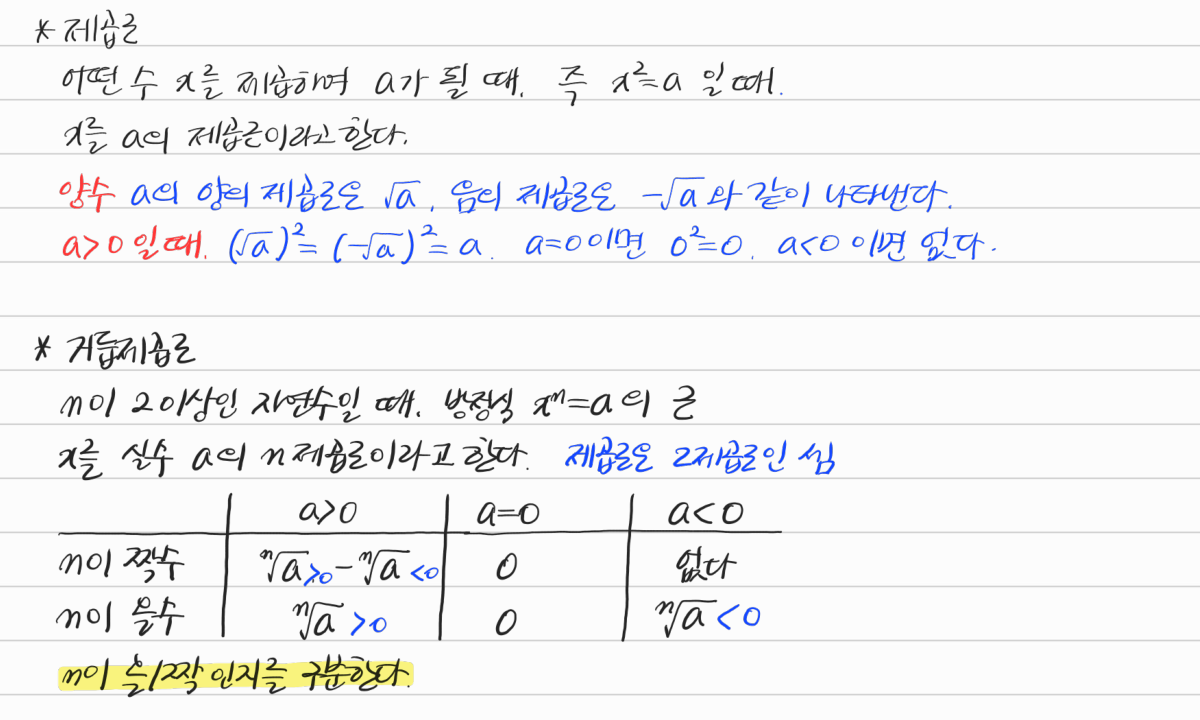 * 제곱근
어떤 수 x를 제곱하여 a가 될 때, 즉 x²=a 일 때,
x를 a의 제곱근이라고 한다.
양수 a의 양의 제곱근은 √a, 음의 제곱근은 -√a와 같이 나타낸다.
a>0 일 때, (√a)²=(-√a)²=a. a=0이면 0²=0, a<0 이면 없다.
* 거듭제곱근
n이 2이상인 자연수일 때, 방정식 xⁿ=a의 근
x를 실수 a의 n제곱근이라고 한다. 제곱근은 2제곱근인 셈
a>0 a=0 a<0
n이 짝수 ⁿ√a>0 -ⁿ√a<0 0 없다
n이 홀수 ⁿ√a>0 0 ⁿ√a<0
n이 홀/짝인지를 구분한다.